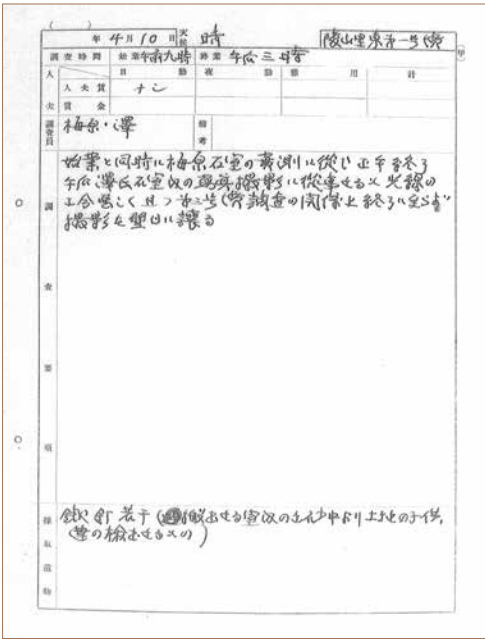 年 4月10日 天候 晴 陵山里東第一号墳
(甲)
調査時間 始業 午前九時 終業 午后三時
人夫 日勤 夜勤 雇用 計
人夫賃 ナシ
賃金
調査員 梅原・澤 備考
調査要項
始業と同時に梅原石室の実測に従ひ正午終る
午后澤氏石室内の写真撮影に従事せるも光線の
工合悪しく且つ第二号墳調査の関係上終了に至らず
撮影を翌日に譲る
採取遺物
鉄釘若干(搬出せる室内の土砂中より土地の子供
等の検出せるもの)